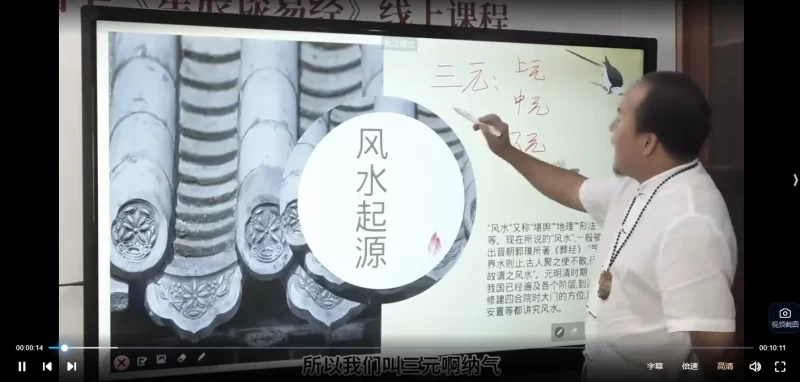 《星辰谈易经》线上课程
批注模式
三元:
上元
中元
元
风水起源
"风水"又称"堪舆""地理""形法
等。现在所说的"风水",一般被
出晋朝郭璞所著《葬经》"气
界水则止,古人聚之使不散,行
故谓之风水"。元明清时期
我国已经遍及各个阶层,到
修建四合院时大门的方位,
安置等都讲究风水。
视频截图
00:00:14
00:10:11
所以我们叫三元啊纳气
字幕
倍速
高清